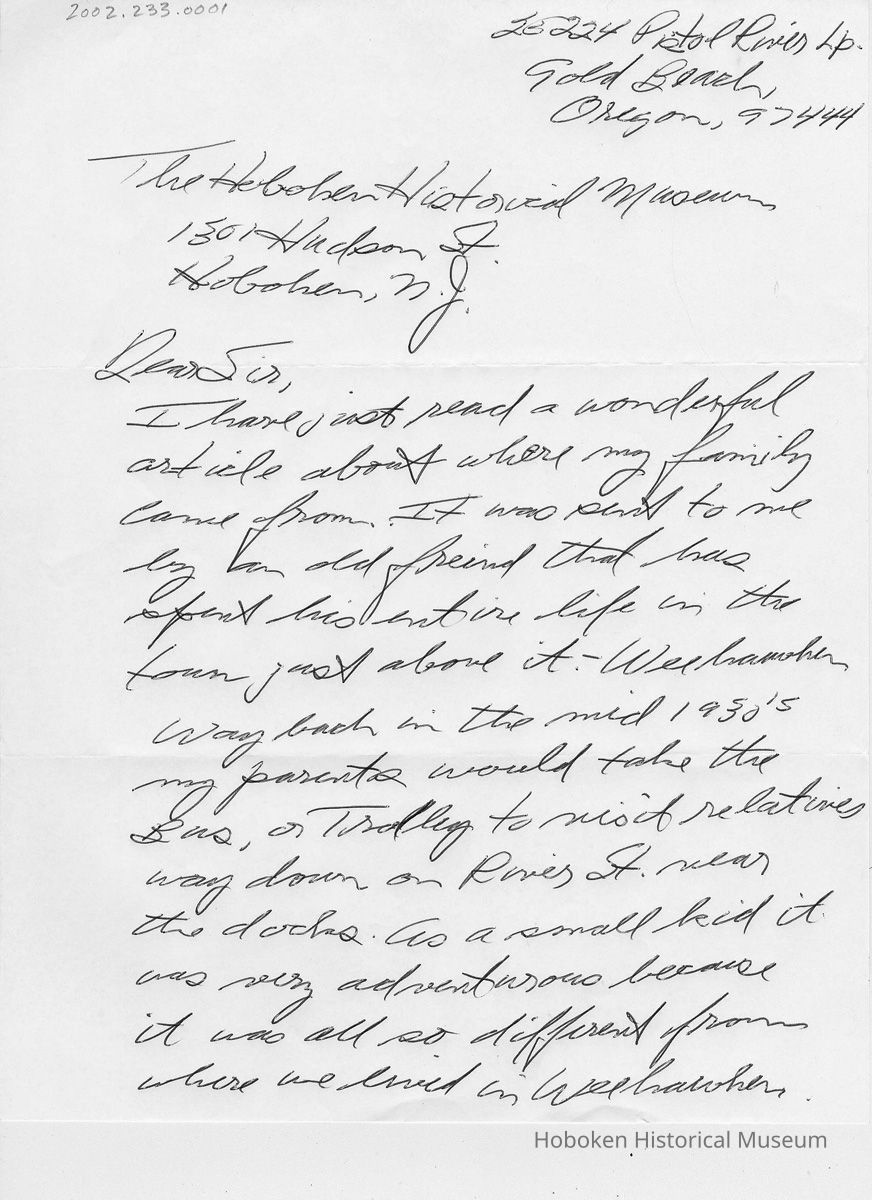 2002.233.0001
25224 Pistol River Lp.
Gold Beach,
Oregon, 97444
The Hoboken Historical Museum
1301 Hudson St.
Hoboken, N.J.
Dear Sir,
I have just read a wonderful
article about where my family
came from. It was sent to me
by an old freind that has
spent his entire life in the
town just above it - Weehawken
Way back in the mid 1930's
my parents would take the
Bus, or Trolley to visit relatives
way down on River St. near
the docks. As a small kid it
was very adventurous because
it was all so different from
where we lived in Weehawken.
Hoboken Historical Museum